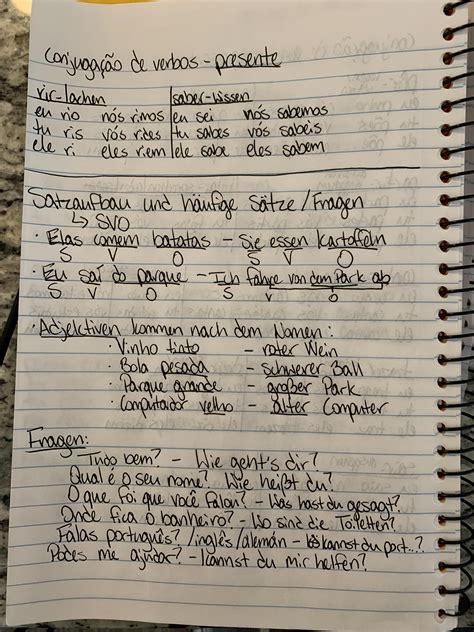 Conjugação de verbos - presente
rir - lachen | saber - wissen
eu rio nós rimos | eu sei nós sabemos
tu ris vós rides | tu sabes vós sabeis
ele ri eles riem | ele sabe eles sabem
Satzaufbau und häufige Sätze/Fragen
↳ SVO
· Elas comem batatas - Sie essen Kartofeln
S V O S V O
· Eu saí do parque - Ich fahre von dem Park ab
S V O S V O
· Adjektiven kommen nach dem Nomen:
· Vinho tinto - roter Wein
· Bola pesada - schwerer Ball
· Parque grande - großer Park
· Computador velho - alter Computer
Fragen:
Tudo bem? - Wie geht's dir?
Qual é o seu nome? Wie heißt du?
O que foi que você falou? - Was hast du gesagt?
Onde fica o banheiro? - Wo sind die Toiletten?
Falas português? /inglês/alemán - kannst du port..?
Podes me ajudar? - kannst du mir helfen?